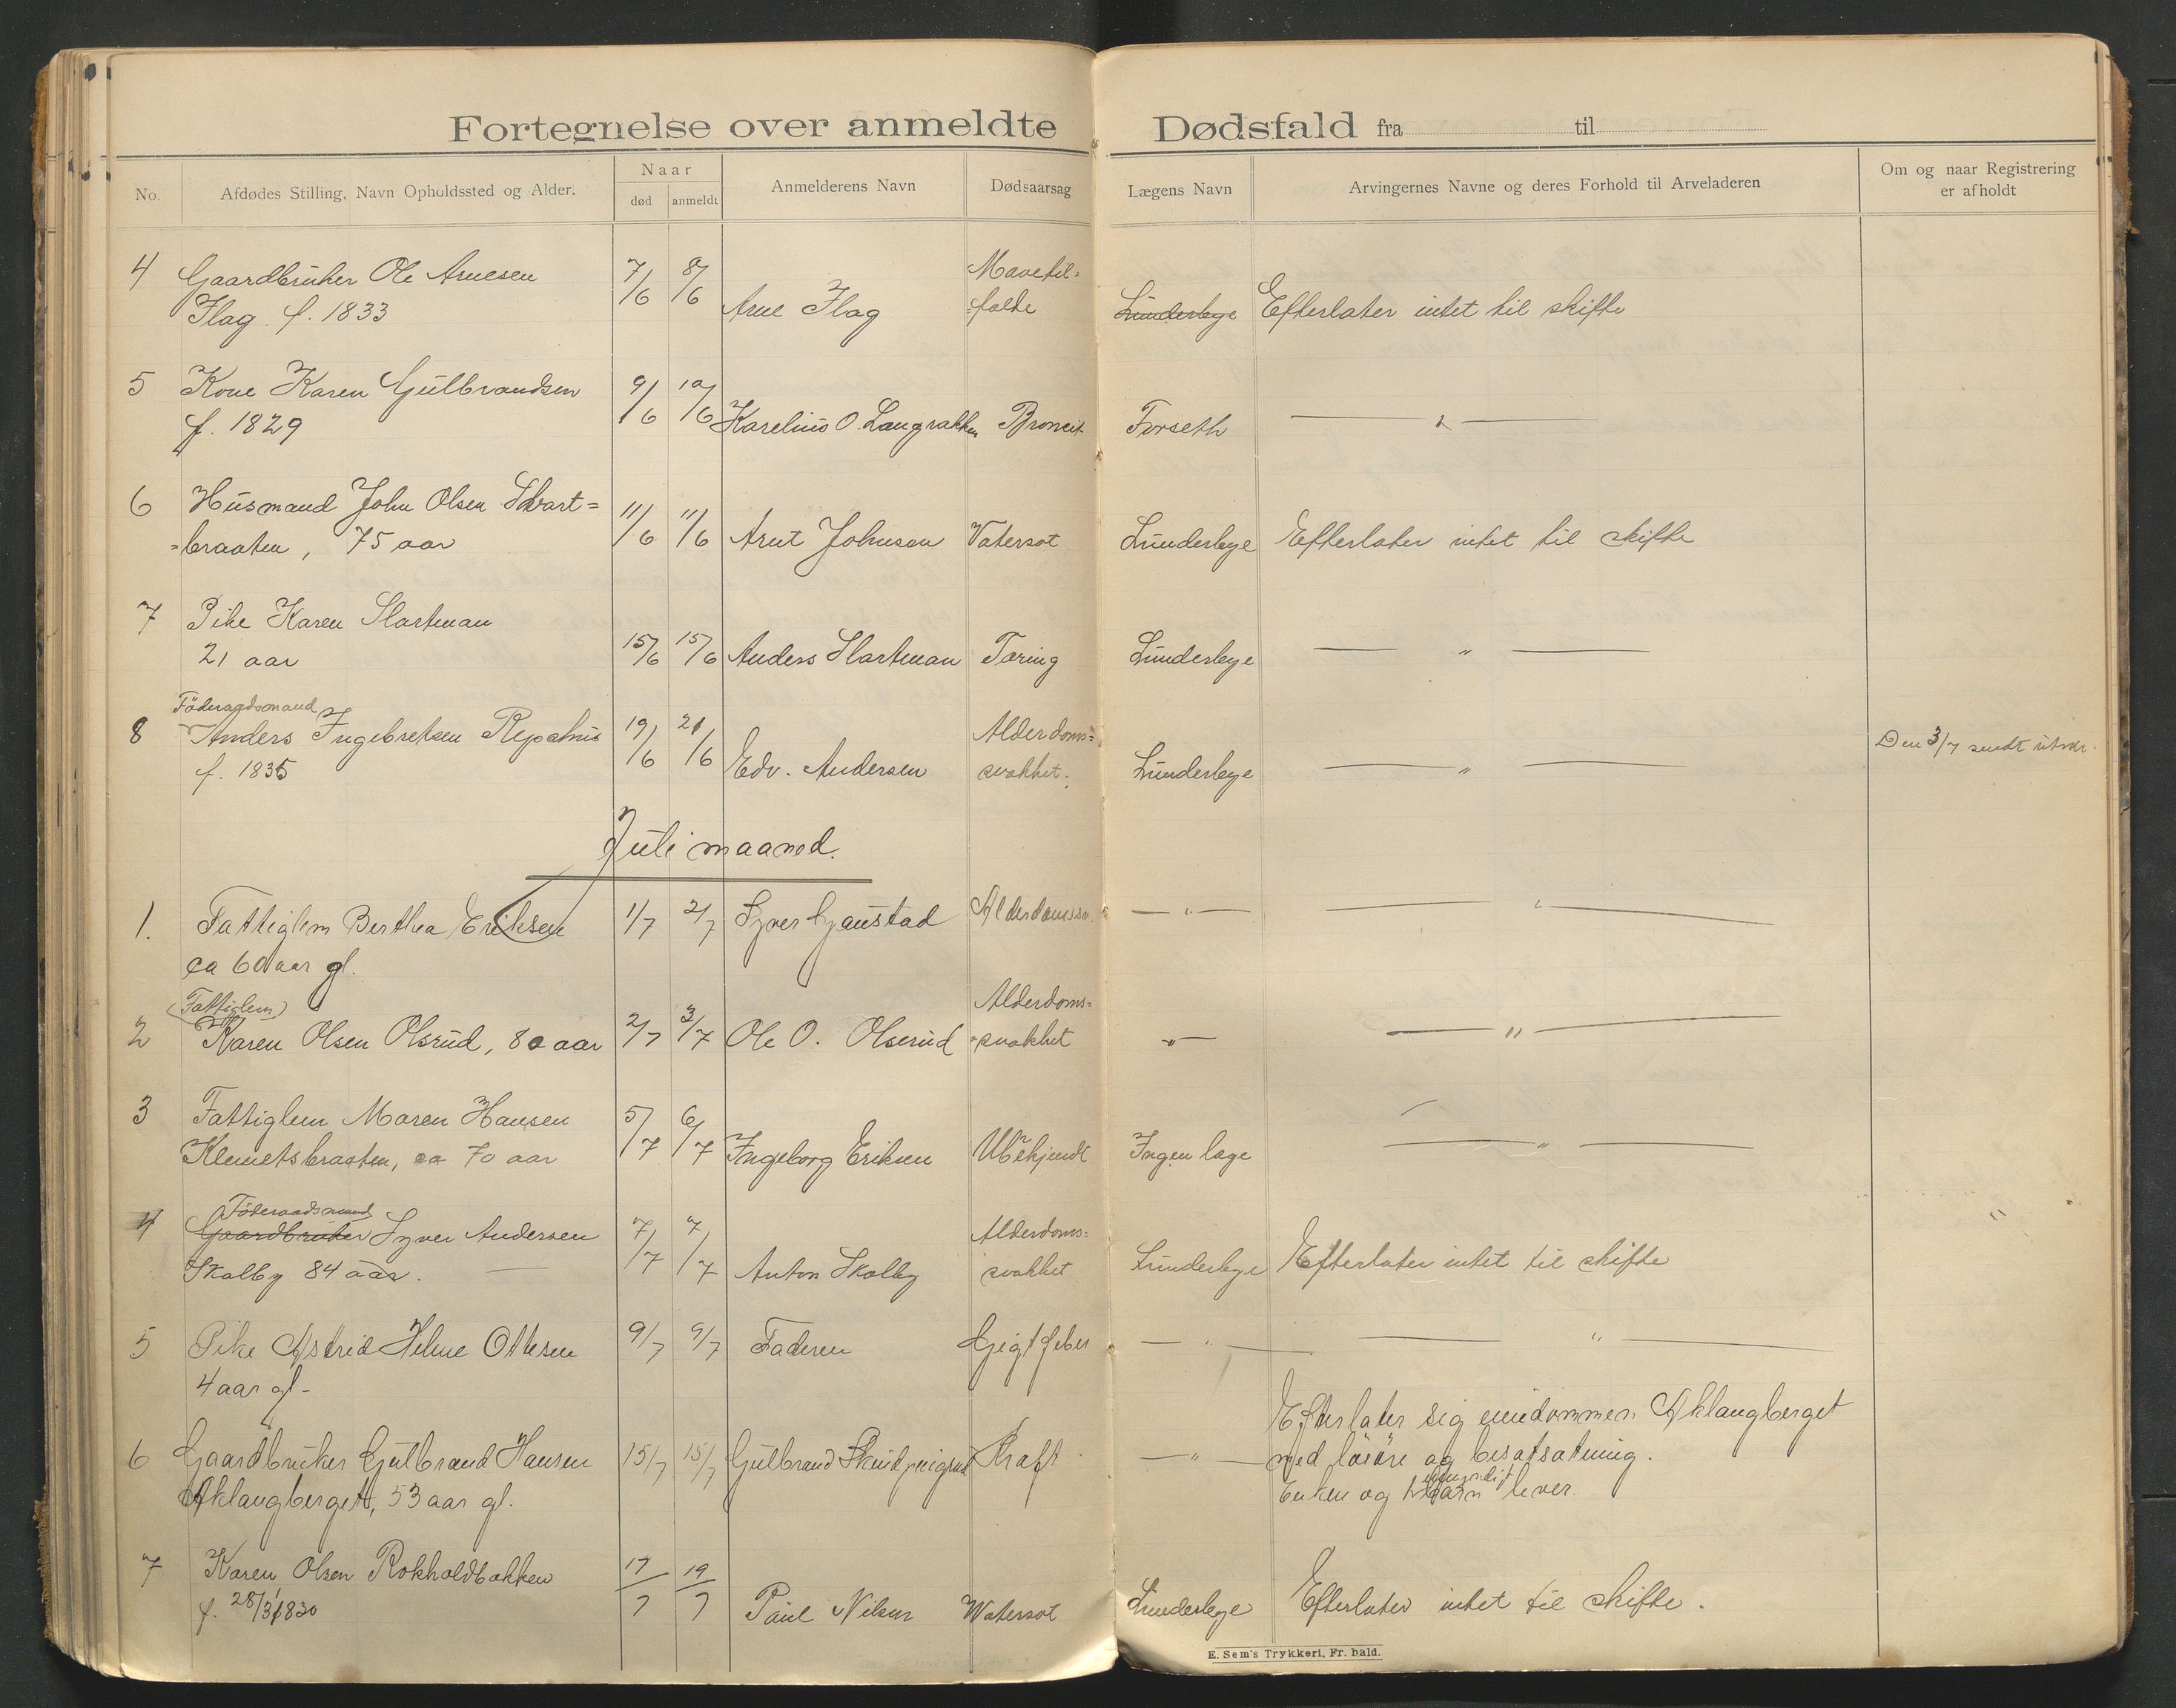 Fortegnelse over anmeldte Dødsfald fra til
No. Afdødes Stilling, Navn Opholdssted og Alder. Naar død anmeldt Anmelderens Navn Dødsaarsag Lægens Navn Arvingernes Navne og deres Forhold til Arveladeren Om og naar Registrering er afholdt
4 Gaardbruker Ole Arnesen 7/6 8/6 Mavetil=
Flag f. 1833 Arne Flag =felde Lunderbye Efterlater intet til skifte
5 Kone Karen Gulbrandsen 9/6 10/6
f. 1829 Karelius O. Langrakken Broncit. Forseth — " —
6 Husmand John Olsen Svart= 11/6 11/6
=braaten, 75 aar Arnt Johnsen Vatersot Lunderbye Efterlater intet til skifte
7 Pike Karen Slastman
21 aar 15/6 15/6 Anders Slastman Tæring Lunderbye — " —
Föderaadsmand
8 Anders Ingebretsen Repshus 19/6 21/6 Alderdoms= Den 3/7 sendt utskr.
f. 1835 Edv. Andersen svakhet. Lunderbye — " —
Juli maaned.
1. Fattiglem Berthea Eriksen 1/7 2/7 Syver Gaustad Alderdomssv. — " — — " —
ca 60 aar gl.
(Fattiglem) Alderdoms=
2 Karen Olsen Olsrud, 80 aar 2/7 3/7 Ole O. Olserud =svakhet — " — — " —
3 Fattiglem Maren Hansen 5/7 6/7
Klemetsbraaten, ca 70 aar Ingeborg Eriksen Ubekjendt Ingen læge — " —
Föderaadsmand
4 Gaardbruker Syver Andersen 7/7 7/7 Alderdoms= "
Skolby 84 aar. — Anton Skolby svakhet Lunderbye Efterlater intet til skifte
5 Pike Astrid Helene Ottesen 9/7 9/7 Faderen Gigtfeber — " — — " —
4 aar gl-
Efterlater sig eiendommen Aklangberget
6 Gaardbruker Gulbrand Hansen 15/7 15/7 Gulbrand Kraft — " — med lösöre og besætsatning.
Aklangberget, 53 aar gl. Enken og umyndigt barn lever.
7 Karen Olsen Rokholdbakken 17/7 19/7
f. 28/3 1830 Paul Nilsen Watersot Lunderbye Efterlater intet til skifte.
E. Sem's Trykkeri, Fr. hald.